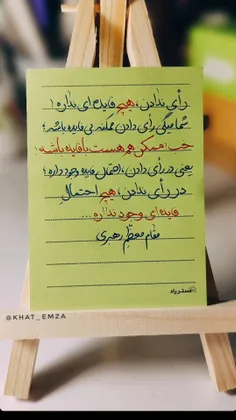 رأی ندادن، هیچ فایده‌ای نداره!
شما میگی رأی دادن ممکنه بی فایده باشه؛
خب! ممکن هم هست با فایده باشه!
یعنی در رأی دادن، احتمال فایده وجود داره؛
در رأی ندادن، هیچ احتمال
فایده‌ای وجود نداره...
مقام معظم رهبری
@KHAT_EMZA